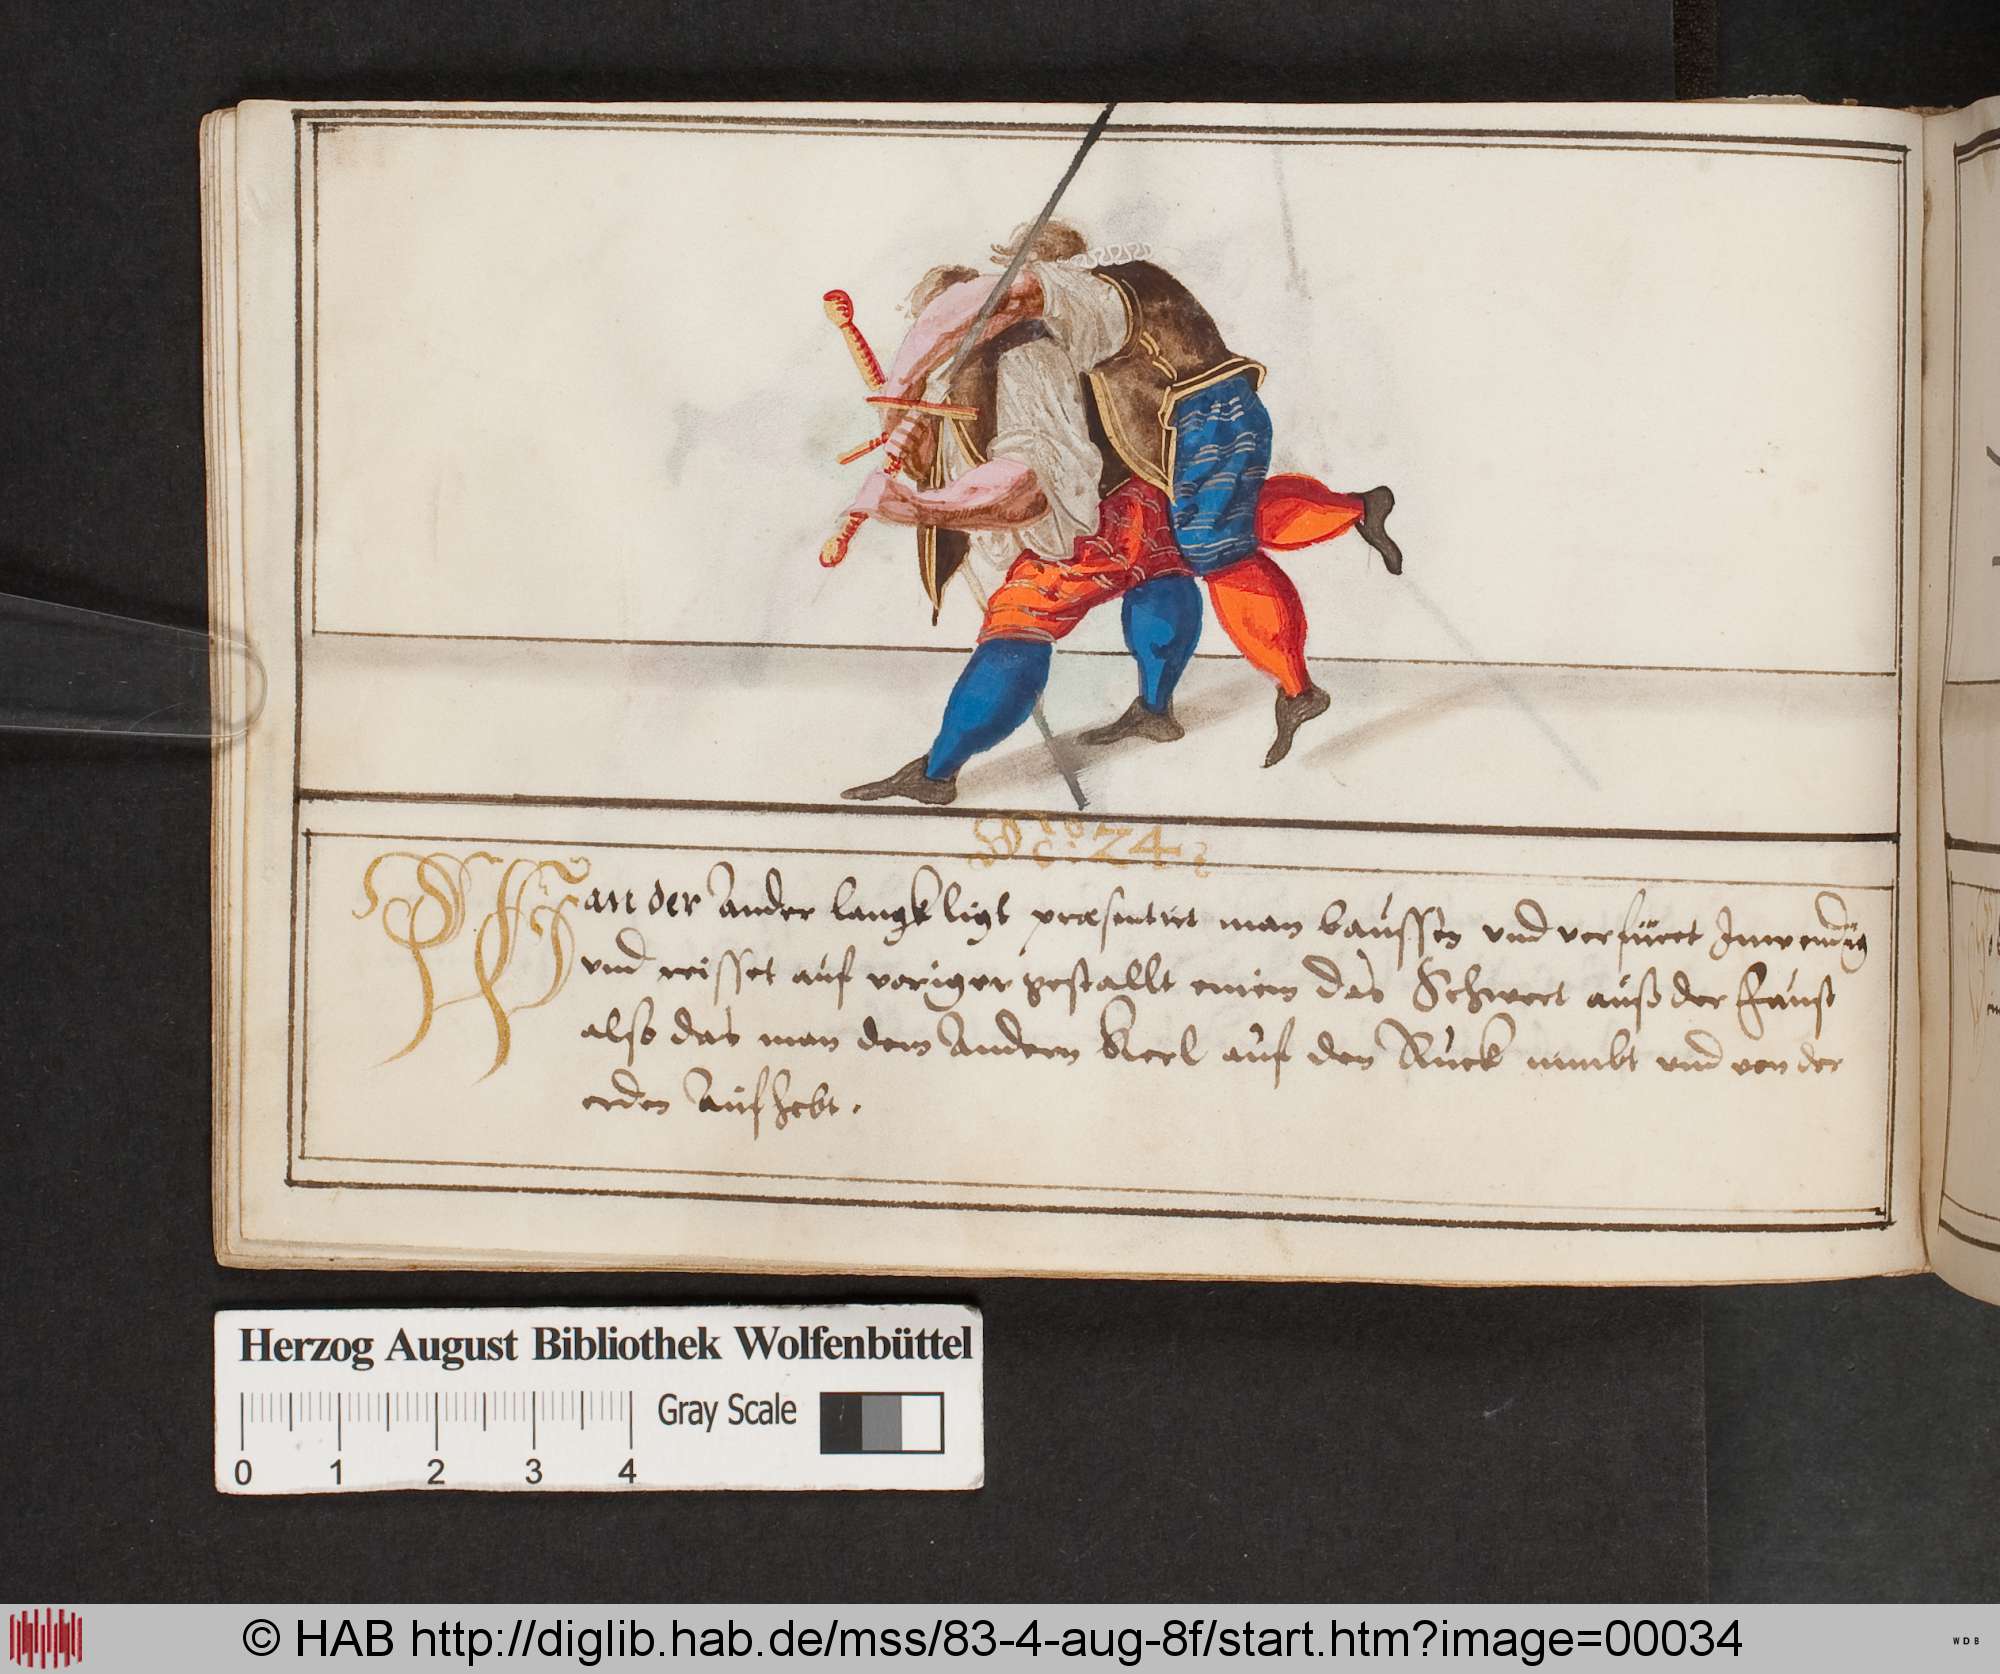 No. 24.
Wan der Ander langk ligt præsentirt man baussen und verfüret Inwendig
und reisset auf voriger gestallt einem das Schwert auß der Faust
also das man dem Andern Kerl auf den Ruck nimbt und von der
erden Aufhebt.
Herzog August Bibliothek Wolfenbüttel
Gray Scale
0 1 2 3 4
© HAB http://diglib.hab.de/mss/83-4-aug-8f/start.htm?image=00034
WDB